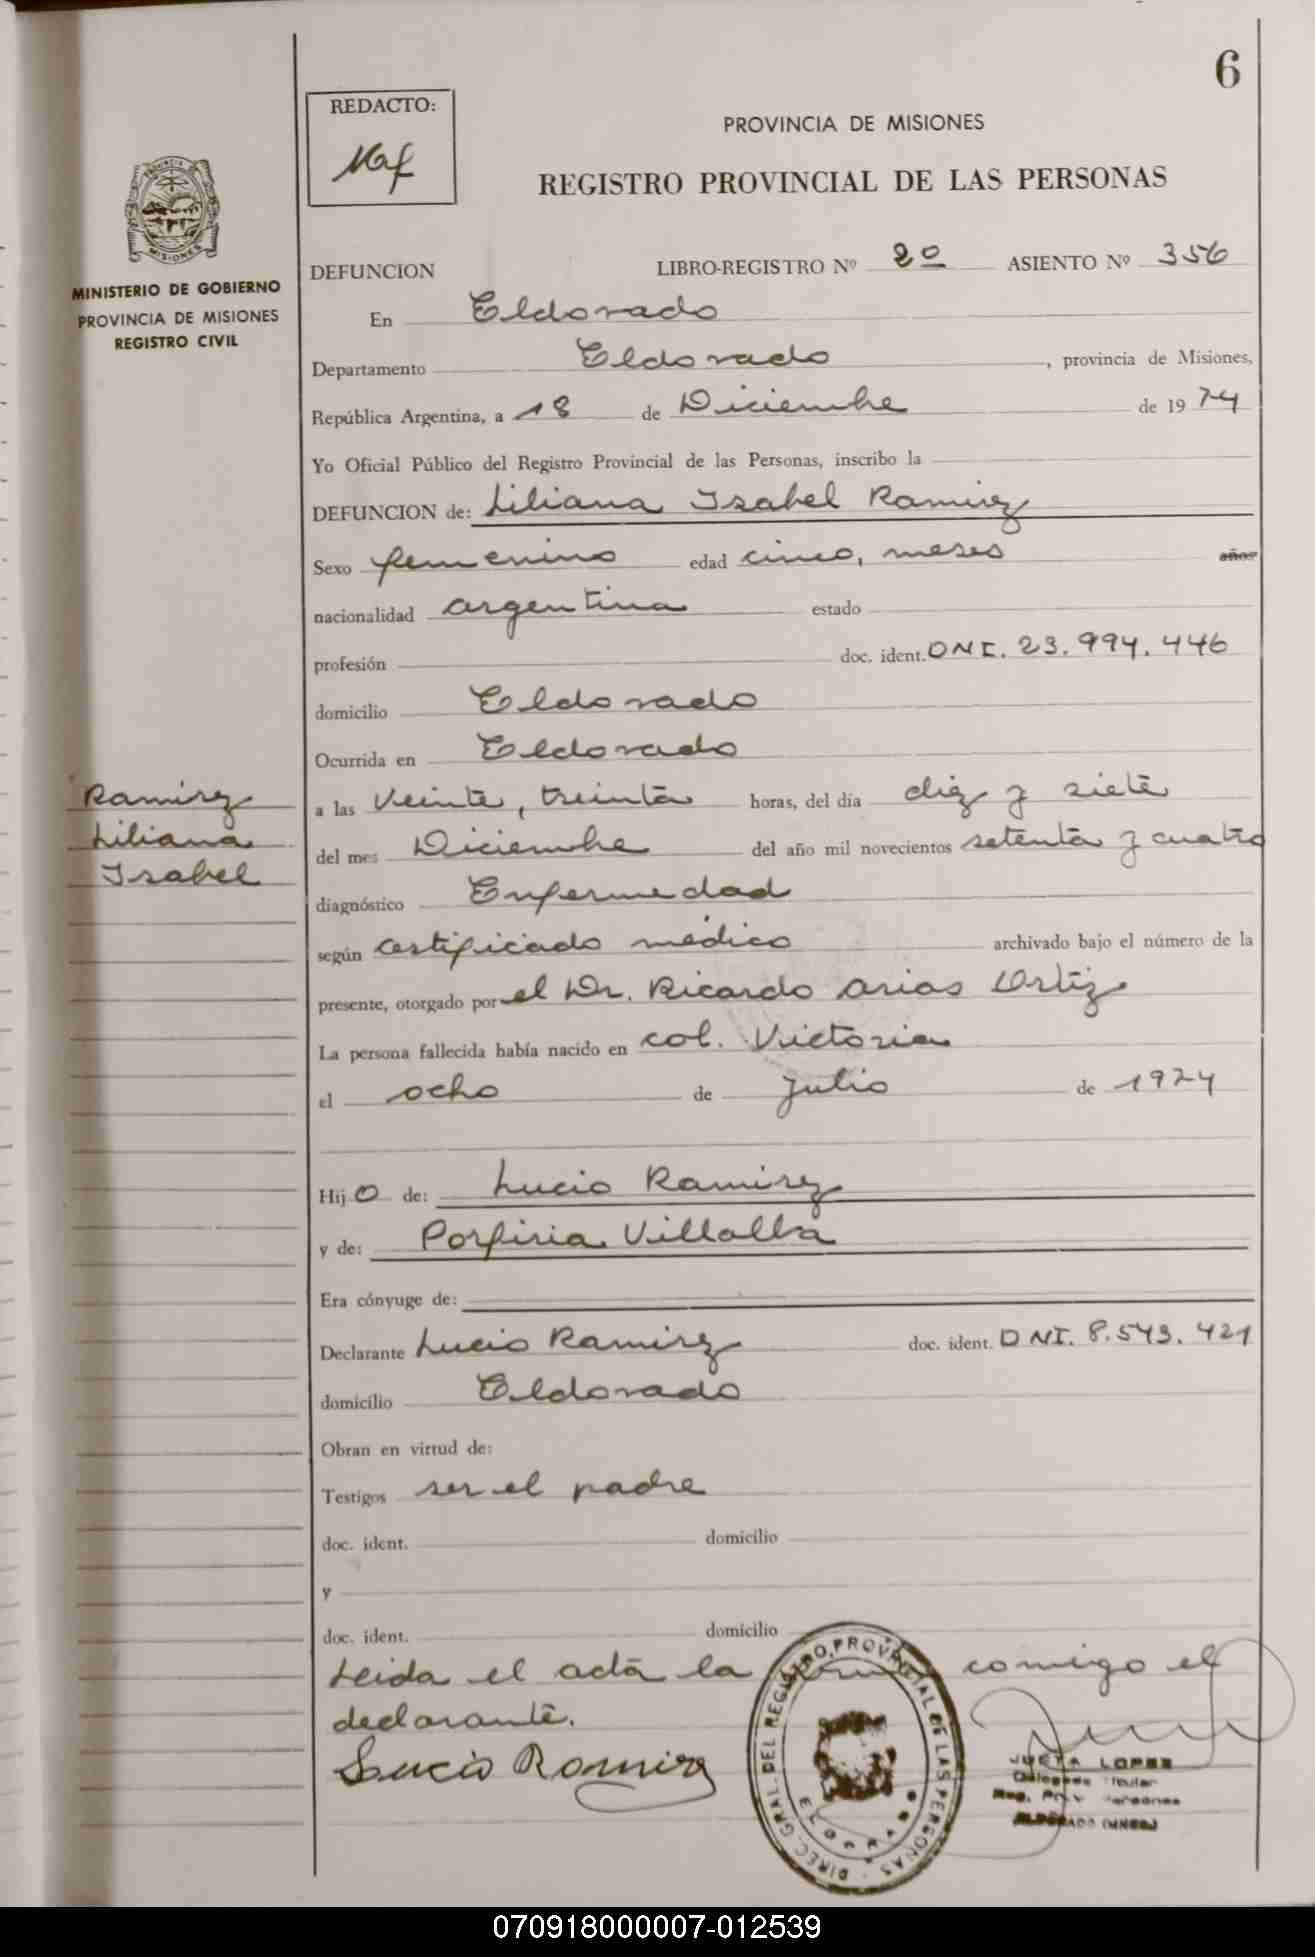 6
REDACTO:
PROVINCIA DE MISIONES
REGISTRO PROVINCIAL DE LAS PERSONAS
PROVINCIA DE
MISIONES
MINISTERIO DE GOBIERNO
PROVINCIA DE MISIONES
REGISTRO CIVIL
DEFUNCION LIBRO-REGISTRO Nº 2º ASIENTO Nº 356
En Eldorado
Departamento Eldorado , provincia de Misiones,
República Argentina, a 18 de Diciembre de 1974
Yo Oficial Público del Registro Provincial de las Personas, inscribo la
DEFUNCION de: Liliana Isabel Ramirez
Sexo femenino edad cinco, meses años
nacionalidad argentina estado
profesión doc. ident. DNI. 23.994.446
domicilio Eldorado
Ocurrida en Eldorado
a las veinte, treinta horas, del día diez y siete
del mes Diciembre del año mil novecientos setenta y cuatro
diagnóstico Enfermedad
según certificado médico archivado bajo el número de la
presente, otorgado por el Dr. Ricardo Arias Ortiz
La persona fallecida había nacido en col. Victoria
el ocho de Julio de 1974
Hijo de: Lucio Ramirez
y de: Porfiria Villalba
Era cónyuge de:
Declarante Lucio Ramirez doc. ident. DNI. 8.543.421
domicilio Eldorado
Obran en virtud de:
Testigos ser el padre
doc. ident. domicilio
y
doc. ident. domicilio
Leida el acta la comigo el
declarante.
Lucio Ramirez
Ramirez
Liliana
Isabel
DIREC. GRAL. DEL REGISTRO PROVINCIAL DE LAS PERSONAS
ELDORADO
LOPEZ
Delegada Titular
Reg. Prov. Personas
ELDORADO (MNES)
070918000007-012539